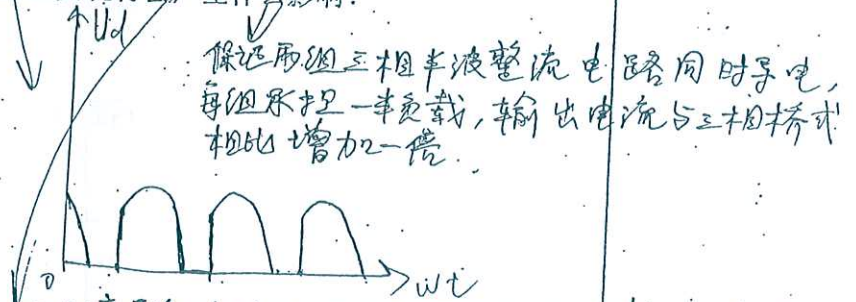 Ud
保证两组三相半波整流电路同时导电,
每组承担一半负载,输出电流与三相桥式
相比增加一倍.
0
wt